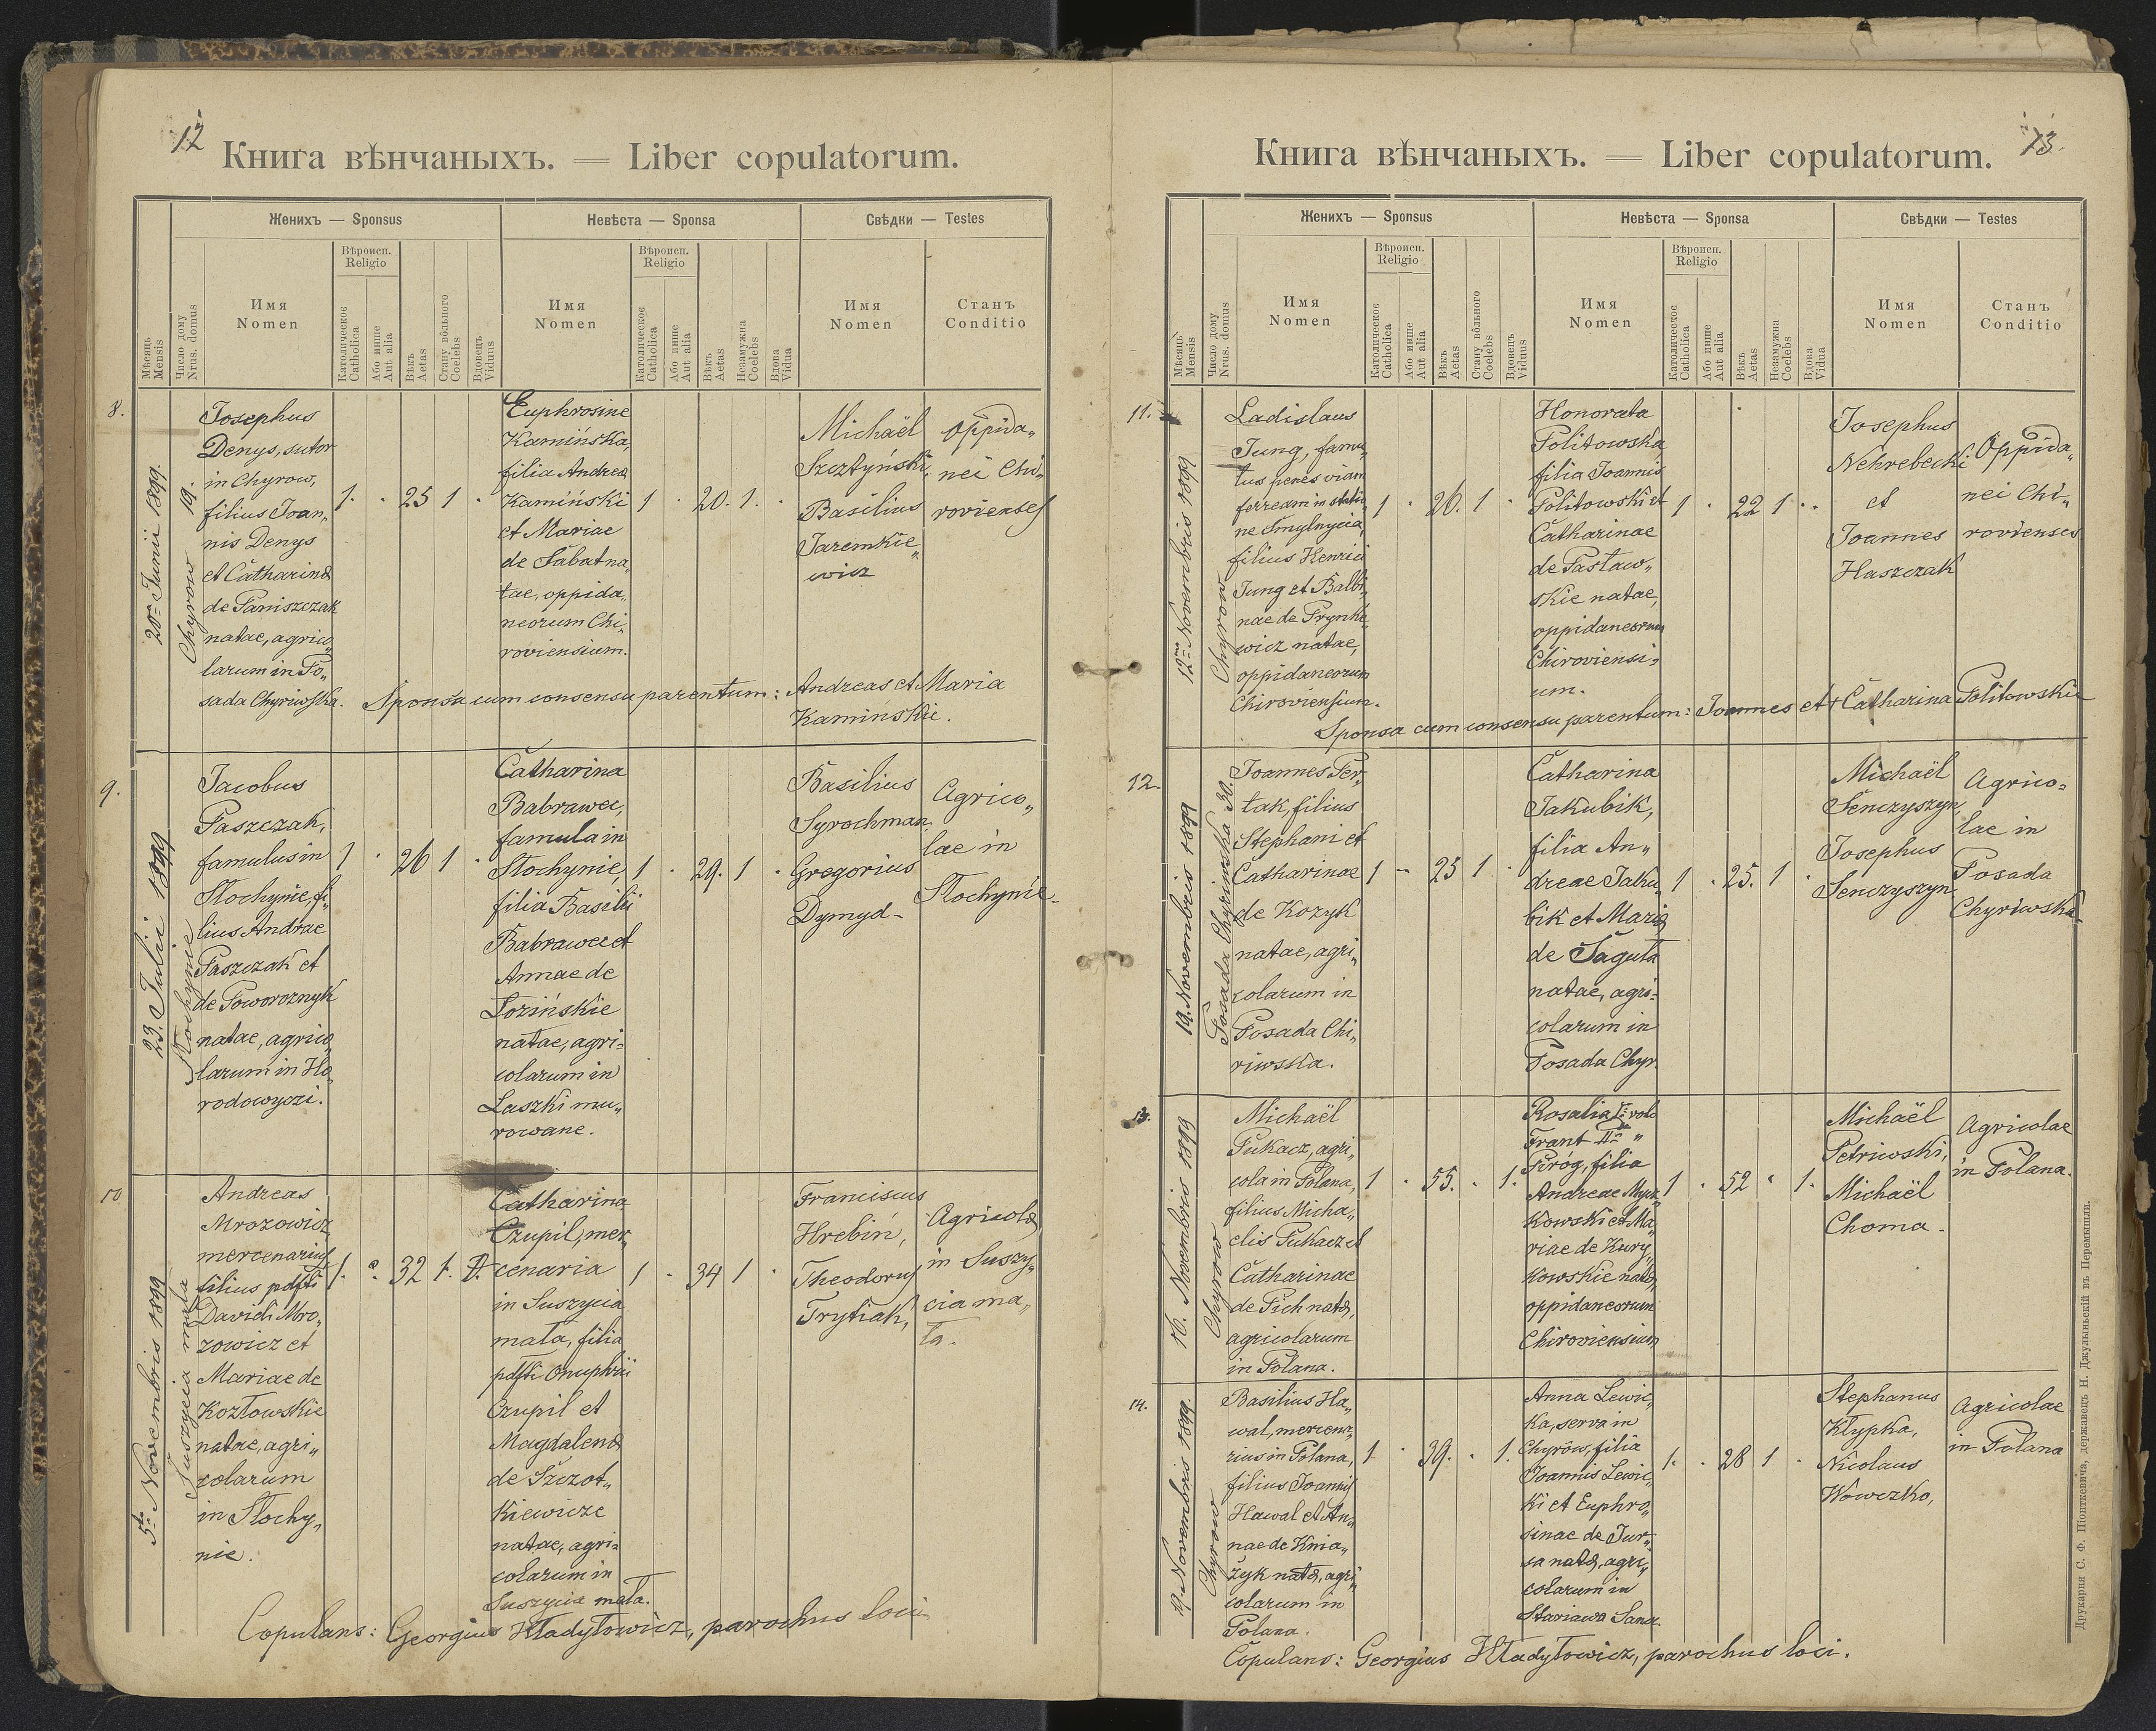 12
Книга вѣнчаныхъ. — Liber copulatorum.
Женихъ — Sponsus
Невѣста — Sponsa
Свѣдки — Testes
Мѣсяць Mensis
Число дому Nrus. domus
Имя
Nomen
Вѣроисп.
Religio
Католическое Catholica
Або инше Aut alia
Вѣкъ Aetas
Стану вôльного Coelebs
Вдовець Viduus
Имя
Nomen
Вѣроисп.
Religio
Католическое Catholica
Або инше Aut alia
Вѣкъ Aetas
Незамужна Coelebs
Вдова Vidua
Имя
Nomen
Станъ
Conditio
8.
20 Junii 1899.
Chyrow 19.
Josephus
Denys, sutor
in Chyrow,
filius Joan„
nis Denys
et Catharinæ
de Paniszczak
natae, agrico„
larum in Po„
sada Chyriwska.
1. . 25 1 .
Euphrosine
Kamińska,
filia Andreæ
Kamiński
et Mariae
de Sabatna„
tae, oppida„
neorum Chi„
roviensium.
1 . 20. 1. .
Michaël
Szeztyński,
Basilius
Jaremkie„
wicz
oppida„
nei Chi„
rovienses
Sponsa cum consensu parentum: Andreas et Maria
Kamińskie.
9.
23. Julii 1899
Słochynie
Jacobus
Paszczak,
famulus in
Słochynie, fi„
lius Andrae
Paszczak et
de Poworoznyk
natae, agrico„
larum in Ho„
rodowyczi.
1 . 26 1 .
Catharina
Babrawec,
famula in
Słochynie,
filia Basilii
Babrawec et
Annae de
Łozińskie
natae, agri=
colarum in
Laszki mu„
rowane.
1 . 29. 1 .
Basilius
Syrochman,
Gregorius
Dymyd-
Agrico„
lae in
Słochynie.
10
5 Novembris 1899
Suszycia mała
Andreas
Mrozowicz
mercenarius
filius pdfti
Davidi Mro„
zowicz et
Mariae de
Kozłowskie
natae, agri„
colarum
in Słochy„
nie.
32
Catharina
Czupil, mer„
cenaria
in Suszycia
mała, filia
pdfti Onuphrii
Czupil et
Magdalenæ
de Szczot„
kiewicze
natae, agri=
colarum in
Suszycia mała.
1 . 34 1 .
Franciscus
Hrebiń,
Theodorus
Trytiak,
Agricolæ
in Suszy„
cia ma„
ła.
Copulans: Georgius Hładyłowicz, parochus loci
13.
Книга вѣнчаныхъ. — Liber copulatorum.
Женихъ — Sponsus
Невѣста — Sponsa
Свѣдки — Testes
Мѣсяць Mensis
Число дому Nrus. domus
Имя
Nomen
Вѣроисп.
Religio
Католическое Catholica
Або инше Aut alia
Вѣкъ Aetas
Стану вôльного Coelebs
Вдовець Viduus
Имя
Nomen
Вѣроисп.
Religio
Католическое Catholica
Або инше Aut alia
Вѣкъ Aetas
Незамужна Coelebs
Вдова Vidua
Имя
Nomen
Станъ
Conditio
11.
12 Novembris 1899
Chyrow
Ladislaus
Jung, famu„
lus penes viam
ferream in statio„
ne Smylnycia,
filius Henrici
Jung et Balbi„
nae de Frynke„
wicz natae,
oppidaneorum
Chiroviensium.
1 . 26. 1 .
Honorata
Politowska
filia Joannis
Politowski et
Catharinae
de Pastaw„
skie natae,
oppidaneorum
Chiroviensi„
um.
1 . 22 1 . .
Josephus
Nehrebecki
et
Joannes
Haszczak
Oppida„
nei Chi„
rovienses
Sponsa cum consensu parentum: Joannes et + Catharina Politowskie
12.
19. Novembris 1899
Posada Chyriwska 30.
Joannes Per„
tak, filius
Stephani et
Catharinae
de Kozyk
natae, agri„
colarum in
Posada Chi„
riwska.
1 - 25 1 .
Catharina
Jakubik,
filia An„
dreae Jaku„
bik et Mariæ
de Saguta
natae, agri=
colarum in
Posada Chyr.
1 . 25. 1 .
Michaël
Senczyszyn,
Josephus
Senczyszyn
Agrico=
lae in
Posada
Chyriwska,
13.
16. Novembris 1899
Chyrow
Michaël
Pukacz, agri„
cola in Polana,
filius Micha„
elis Pukacz et
Catharinae
de Pich natæ,
agricolarum
in Polana.
1 . 55. . 1.
Rosalia I voto
Frant II „
Piróg, filia
Andreae Mysz„
kowski et Ma„
riae de Kury„
kowskie natæ,
oppidaneorum
Chiroviensium
1 . 52 . 1.
Michaël
Petriwski,
Michaël
Choma.
Agricolae
in Polana.
14.
19. Novembris 1899.
Chyrow
Basilius Ha„
wal, mercena„
rius in Polana,
filius Joannis
Hawal et An„
nae de Knia„
żyk natæ, agri„
colarum in
Polana.
1 . 39. . 1.
Anna Lewic„
ka, serva in
Chyrów, filia
Joannis Lewic„
ki et Euphro„
sinae de Jur„
sa natæ, agri„
colarum in
Stariawa Sanoc.
1. . 28 1 .
Stephanus
Kłypka,
Nicolaus
Wowczko,
Agricolae
in Polana
Copulans: Georgius Hładyłowicz, parochus loci.
Друкарня С. Ф. Піонткевича, державець Н. Джулыньскій въ Перемышли.